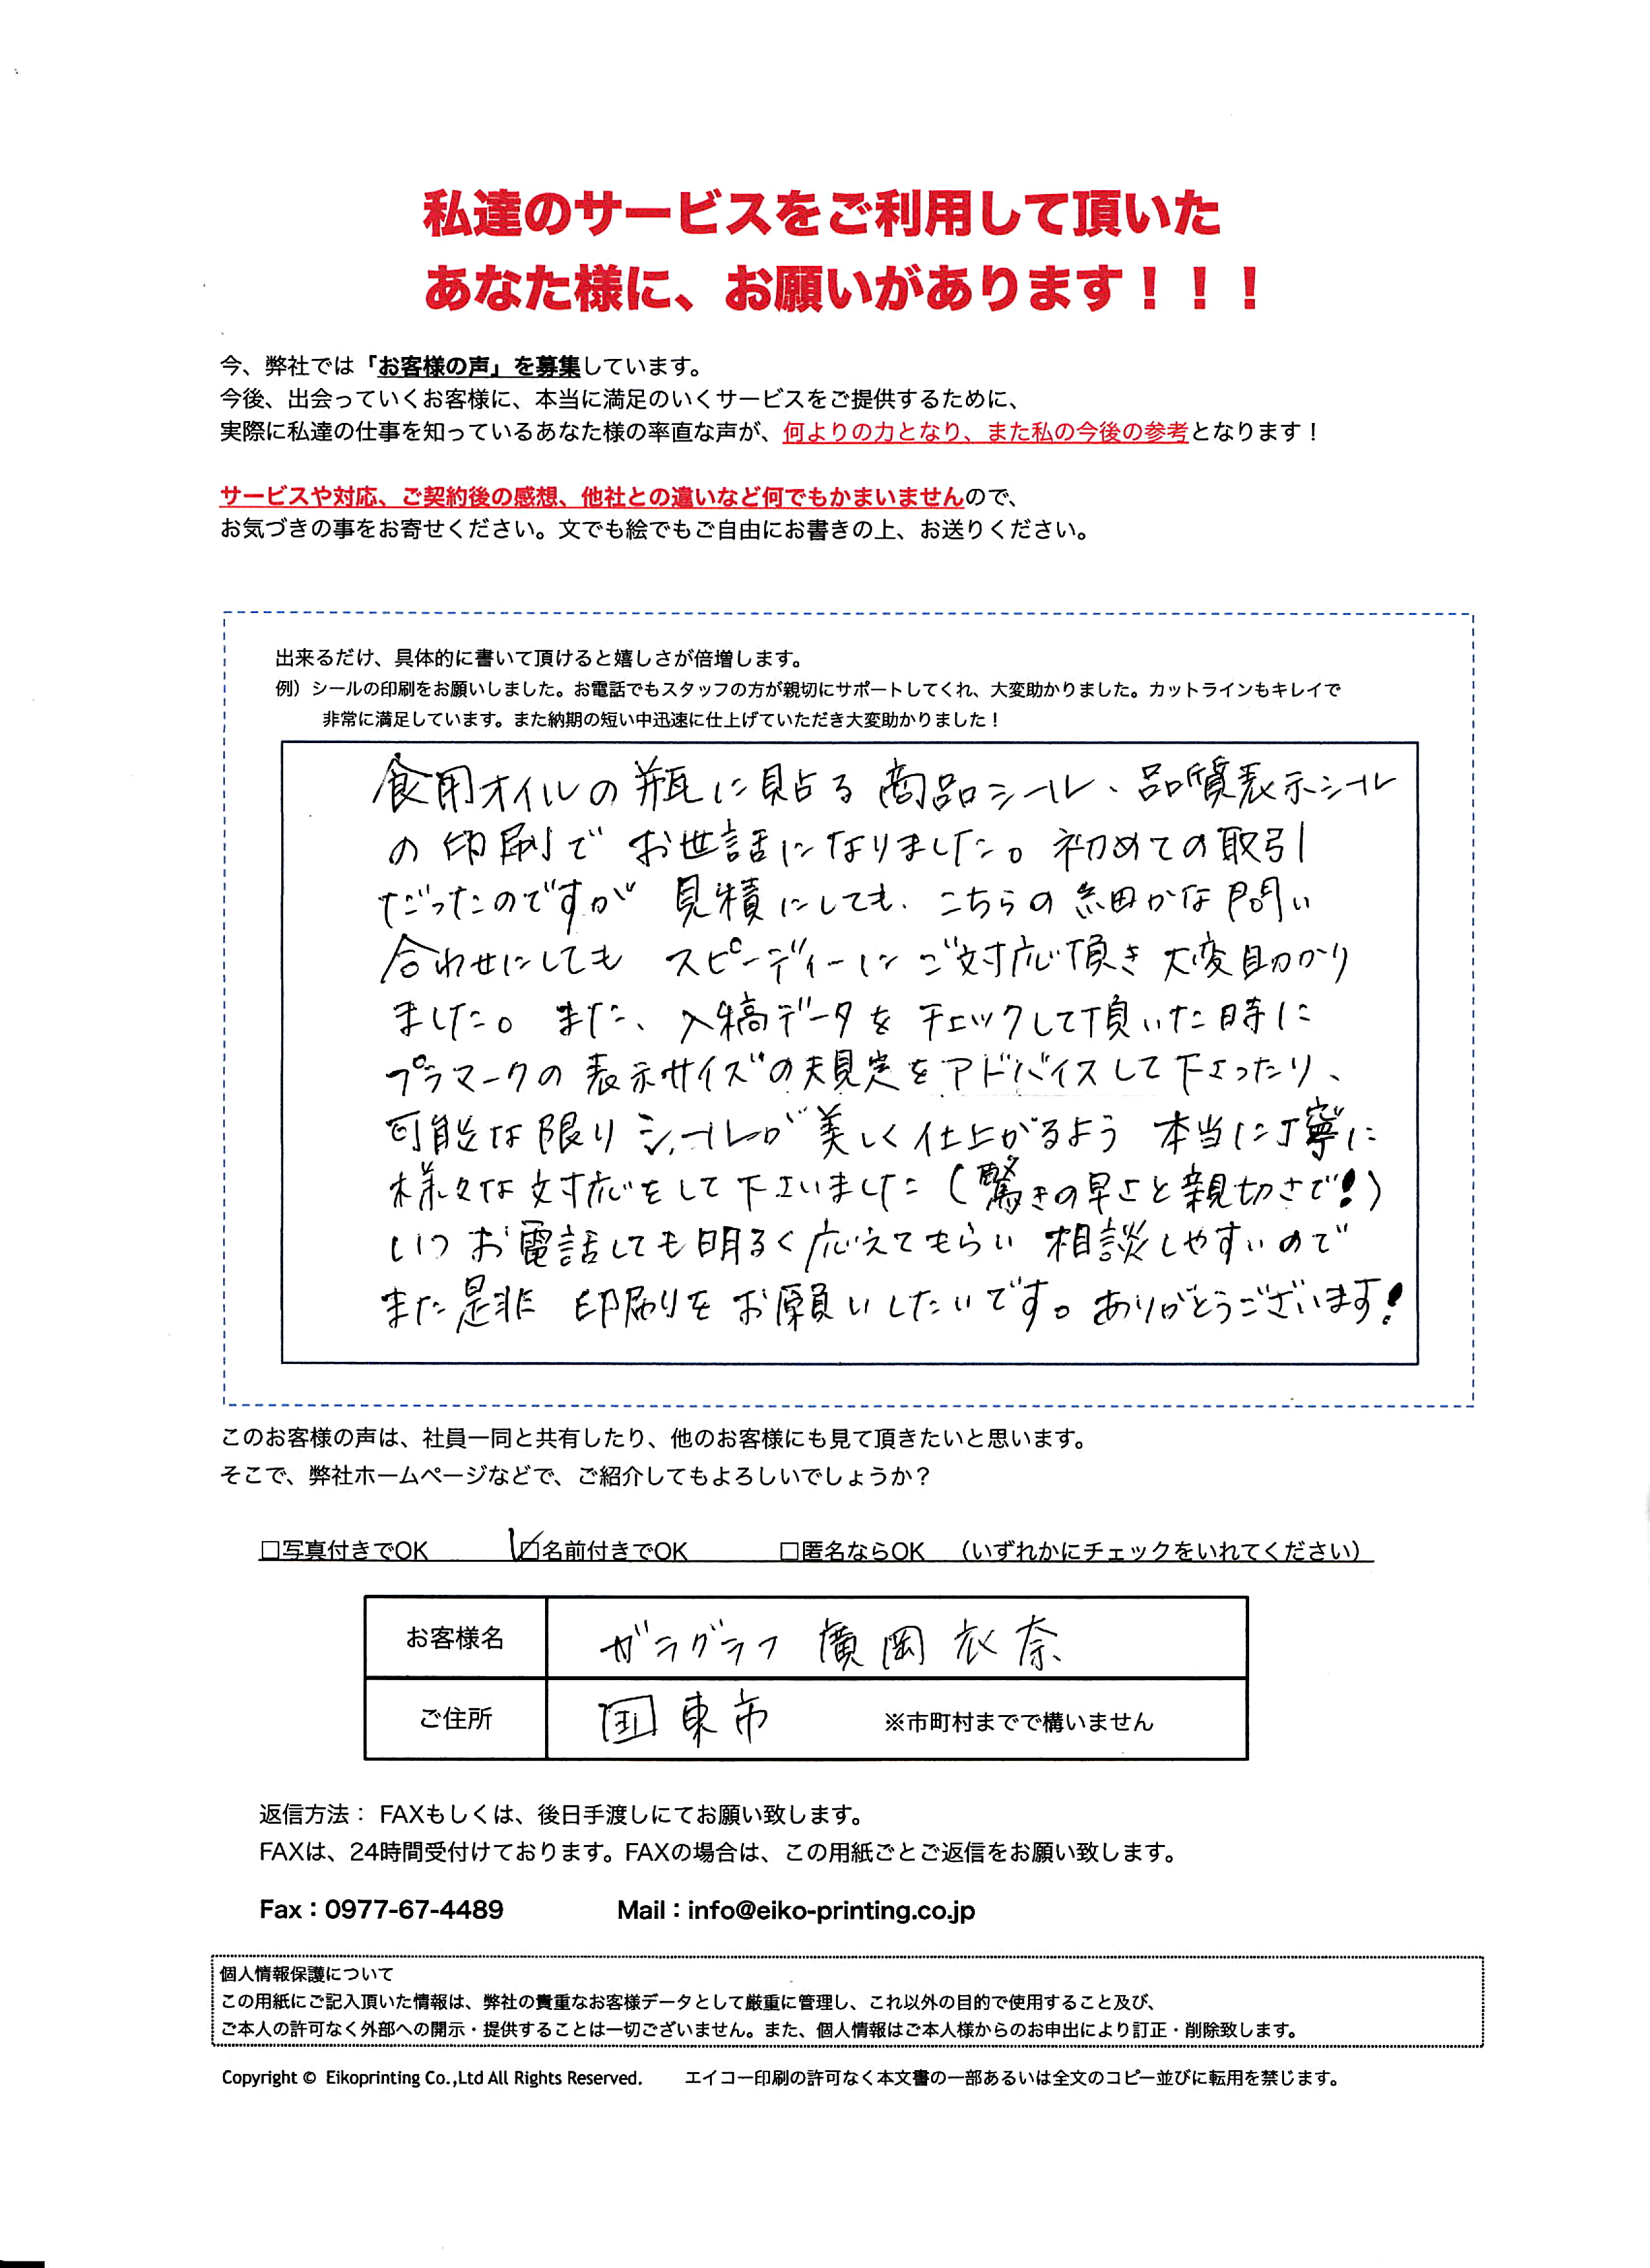 私達のサービスをご利用して頂いた
あなた様に、お願いがあります！！！
今、弊社では「お客様の声」を募集しています。
今後、出会っていくお客様に、本当に満足のいくサービスをご提供するために、
実際に私達の仕事を知っているあなた様の率直な声が、何よりの力となり、また私の今後の参考となります！
サービスや対応、ご契約後の感想、他社との違いなど何でもかまいませんので、
お気づきの事をお寄せください。文でも絵でもご自由にお書きの上、お送りください。
出来るだけ、具体的に書いて頂けると嬉しさが倍増します。
例）シールの印刷をお願いしました。お電話でもスタッフの方が親切にサポートしてくれ、大変助かりました。カットラインもキレイで
非常に満足しています。また納期の短い中迅速に仕上げていただき大変助かりました！
食用オイルの瓶に貼る商品シール、品質表示シール
の印刷で お世話になりました。初めての取引
だったのですが 見積にしても、こちらの細かな問い
合わせにしても スピーディーに ご対応頂き 大変助かり
ました。また、入稿データを チェックして頂いた時に
プラマークの表示サイズの規定をアドバイスして下さったり、
可能な限り シールが美しく仕上がるよう 本当に丁寧に
様々な対応をして下さいました（驚きの早さと親切さで！）
いつお電話しても明るく応えてもらい 相談しやすいので
また是非 印刷りをお願いしたいです。ありがとうございます！
このお客様の声は、社員一同と共有したり、他のお客様にも見て頂きたいと思います。
そこで、弊社ホームページなどで、ご紹介してもよろしいでしょうか？
□写真付きでOK ☑名前付きでOK □匿名ならOK （いずれかにチェックをいれてください）
お客様名 ガラグラフ 廣岡 衣奈
ご住所 国東市 ※市町村までで構いません
返信方法： FAXもしくは、後日手渡しにてお願い致します。
FAXは、24時間受付けております。FAXの場合は、この用紙ごとご返信をお願い致します。
Fax：0977-67-4489 Mail：info@eiko-printing.co.jp
個人情報保護について
この用紙にご記入頂いた情報は、弊社の貴重なお客様データとして厳重に管理し、これ以外の目的で使用すること及び、
ご本人の許可なく外部への開示・提供することは一切ございません。また、個人情報はご本人様からのお申出により訂正・削除致します。
Copyright © Eikoprinting Co.,Ltd All Rights Reserved. エイコー印刷の許可なく本文書の一部あるいは全文のコピー並びに転用を禁じます。